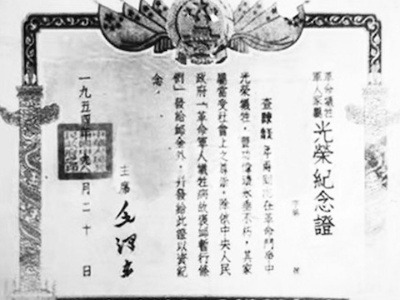 革命犧牲
軍人家屬
光榮紀念證
字第 號
查 在革命鬥爭中
光榮犧牲，豐功偉績永垂不朽，其家
屬當受社會上之尊崇。除依中央人民
政府「革命軍人犧牲病故褒卹暫行條
例」發給卹金外，並發給此證以資紀
念。
主席 毛澤東
一九五四年 月二十日